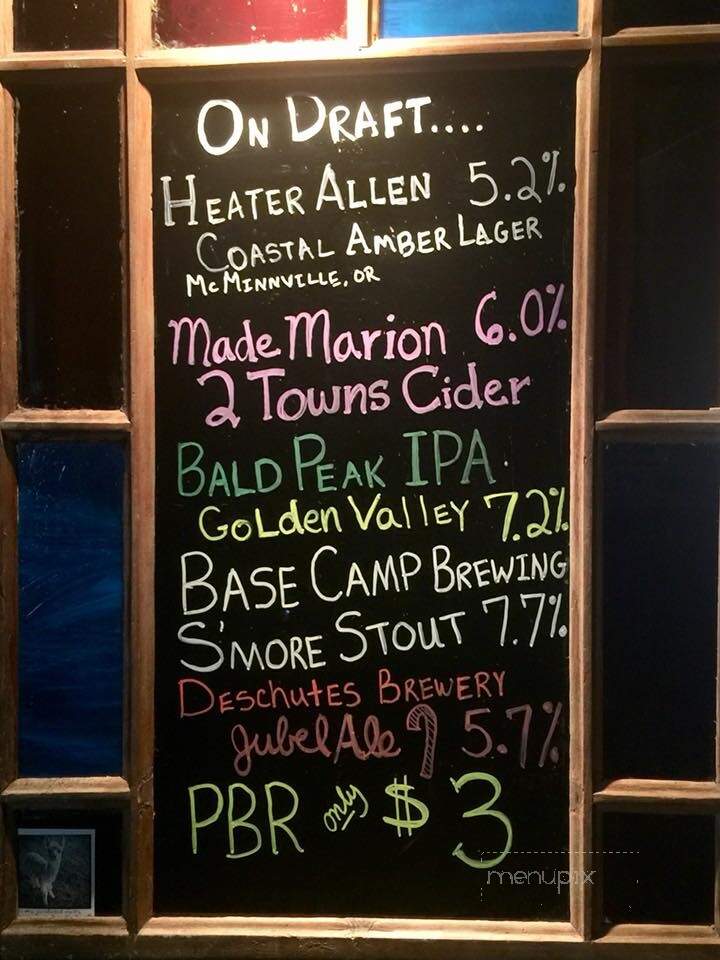 ON DRAFT....
HEATER ALLEN 5.2%
COASTAL AMBER LAGER
McMINNVILLE, OR
Made Marion 6.0%
2 Towns Cider
BALD PEAK IPA
GoLden Valley 7.2%
BASE CAMP BREWING
S'MORE STOUT 7.7%
DESchutES BREWERY
JubelAle 5.7%
PBR only $3
menupix